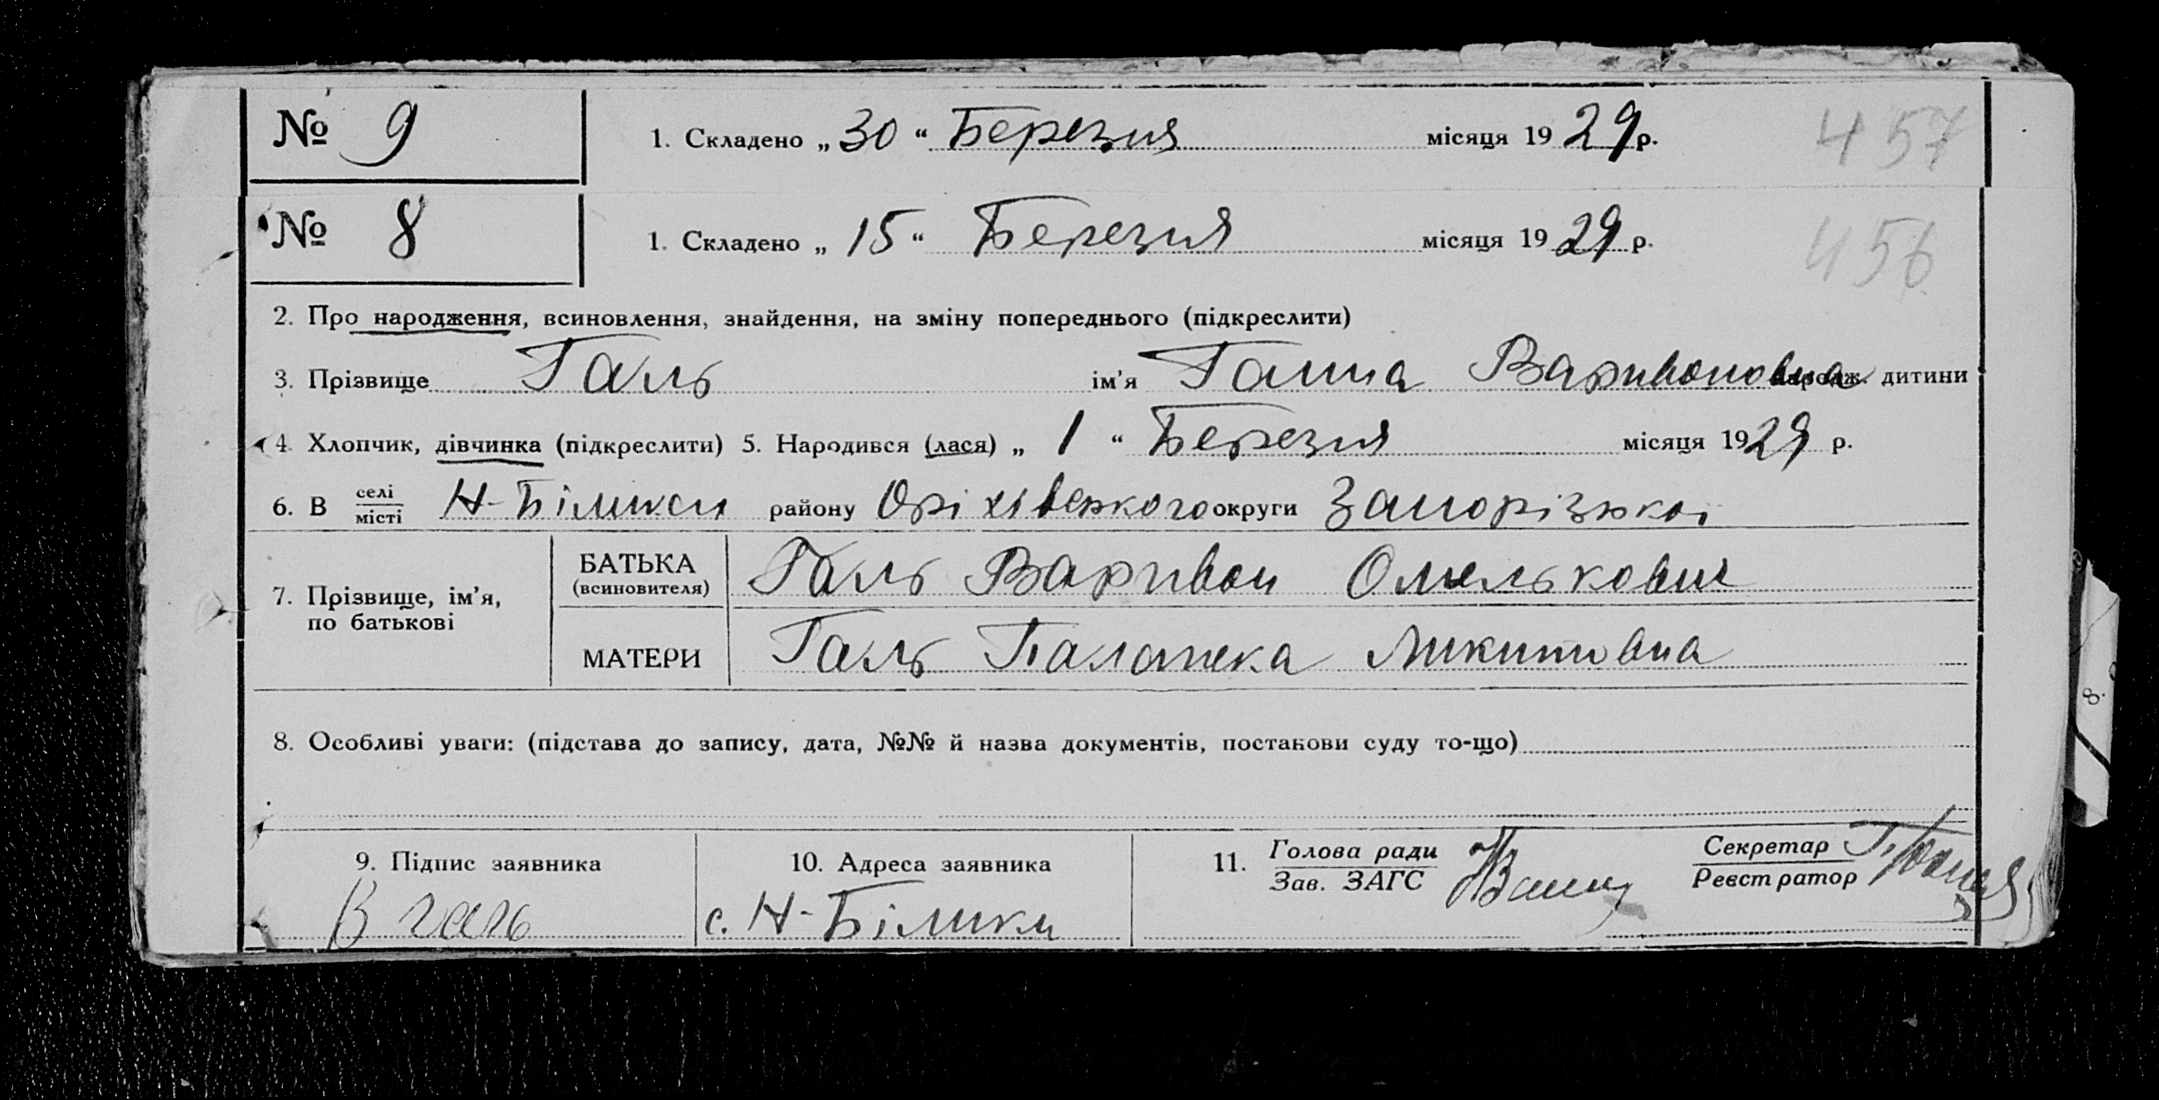 № 9 1. Складено „ 30 “ Березня місяця 1929 р. 457
№ 8 1. Складено „ 15 “ Березня місяця 1929 р. 456
2. Про народження, всиновлення, знайдення, на зміну попереднього (підкреслити)
3. Прізвище Галь ім’я Ганна Варивоновна народж. дитини
4. Хлопчик, дівчинка (підкреслити) 5. Народився (лася) „ 1 “ Березня місяця 1929 р.
6. В селі/місті Н-Білики району Оріхівського округи Запорізької
7. Прізвище, ім’я, по батькові
БАТЬКА (всиновителя) Галь Варивон Омелькович
МАТЕРИ Галь Палажка Микитовна
8. Особливі уваги: (підстава до запису, дата, №№ й назва документів, постанови суду то-що)
9. Підпис заявника 10. Адреса заявника 11. Голова ради/Зав. ЗАГС Секретар/Реєстратор
В Галь с. Н-Білики
8.